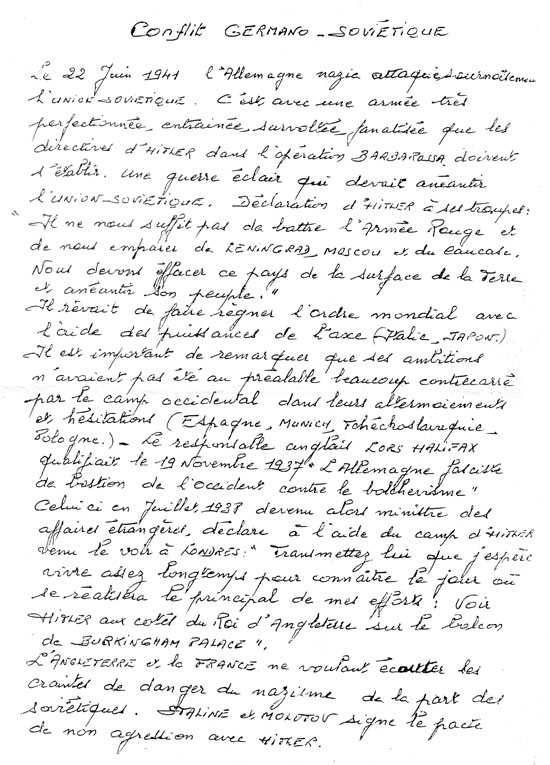 Conflit GERMANO-SOVIÉTIQUE
Le 22 Juin 1941 l'Allemagne nazie attaque sournoisement
l'UNION SOVIETIQUE. C'est avec une armée très
perfectionnée, entrainée, survoltée, fanatisée que les
directives d'HITLER dans l'opération BARBAROSSA doivent
s'établir. Une guerre éclair qui devait anéantir
l'UNION-SOVIETIQUE. Déclaration d'HITLER à ses troupes:
"Il ne nous suffit pas de battre l'Armée Rouge et
de nous emparer de LENINGRAD, Moscou et du Caucase.
Nous devons effacer ce pays de la surface de la Terre
et anéantir son peuple."
Il rêvait de faire règner l'ordre mondial avec
l'aide des puissances de l'axe (Italie, JAPON.)
Il est important de remarquer que ses ambitions
n'avaient pas été au préalable beaucoup contrecarré
par le camp occidental dans leurs atermoiements
et hésitations (Espagne, MUNICH, Tchéchoslavaquie,
Pologne.) - Le responsable anglais LORS HALIFAX
qualifiait le 19 Novembre 1937 "L'Allemagne fasciste
de bastion de l'occident contre le bolchevisme"
Celui ci en Juillet 1938 devenu alors ministre des
affaires étrangères, déclare à l'aide du camp d'HITLER
venu le voir à LONDRES: "Transmettez lui que j'espère
vivre assez longtemps pour connaître le jour où
se réalisera le principal de mes efforts: Voir
HITLER aux cotés du Roi d'Angleterre sur le balcon
de BURKINGHAM PALACE".
L'ANGLETERRE et la FRANCE ne voulant écouter les
craintes de danger du nazisme de la part des
soviétiques. STALINE et MOLOTOV signe le pacte
de non agression avec HITLER.